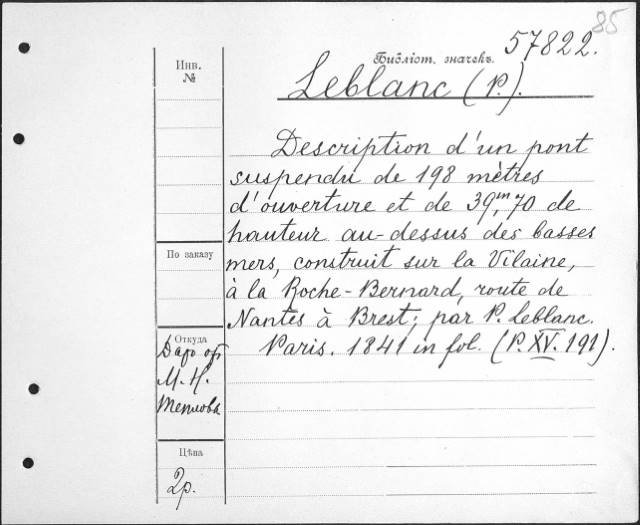 85
57822.
Библіот. значекъ.
Инв.
№
Leblanc (P.).
Description d'un pont
suspendu de 198 mètres
d'ouverture et de 39,m70 de
hauteur au-dessus des basses
mers, construit sur la Vilaine,
à la Roche-Bernard, route de
Nantes à Brest; par P. Leblanc.
Paris. 1841 in fol. (P. XV. 191).
По заказу
Откуда
Даръ отъ
М. Н.
Теплова
Цѣна
2р.